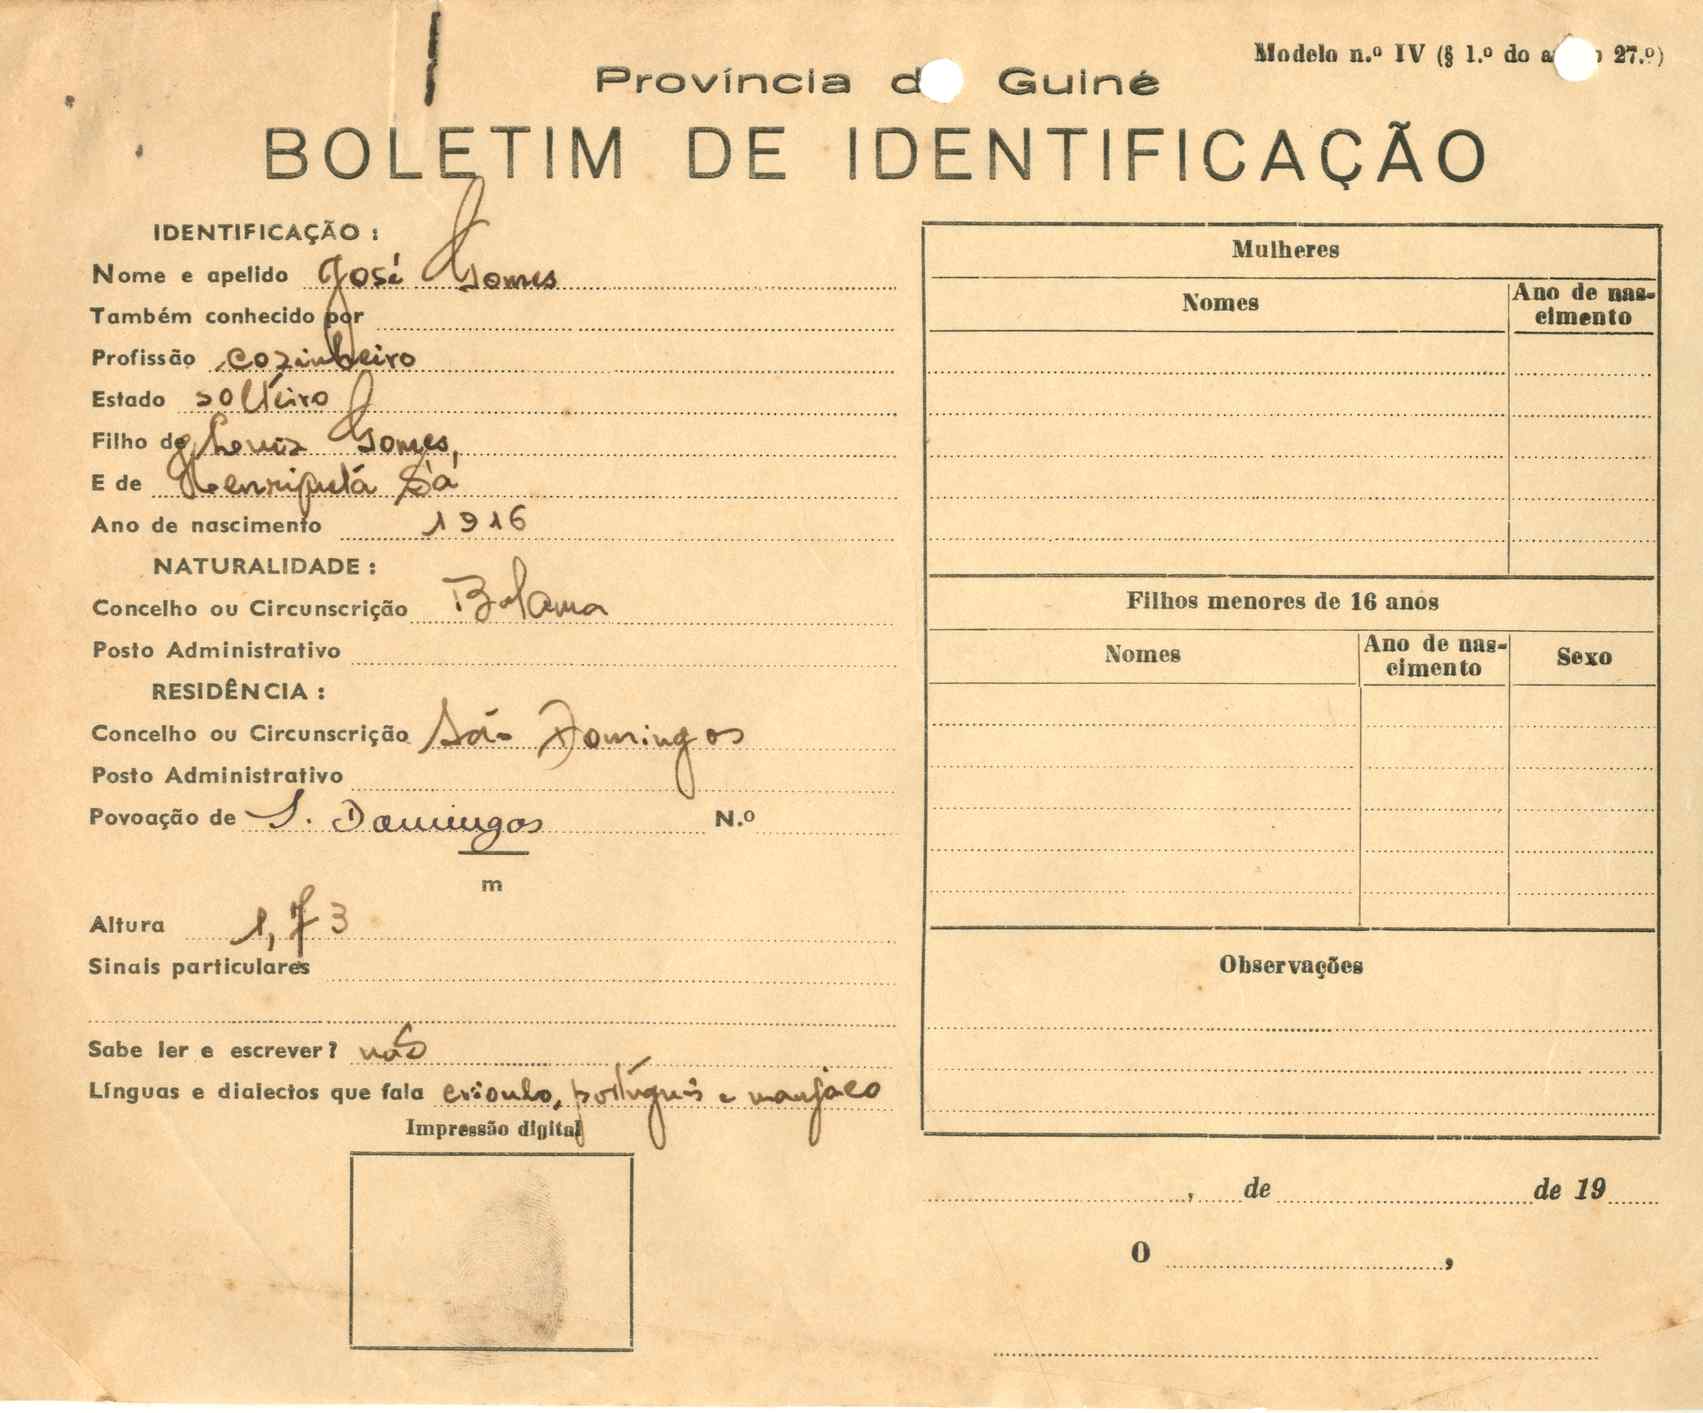 Modelo n.º IV (§ 1.º do a 27.º)
Província d Guiné
BOLETIM DE IDENTIFICAÇÃO
IDENTIFICAÇÃO :
Nome e apelido José Gomes
Também conhecido por
Profissão cozinheiro
Estado solteiro
Filho de Gomes,
E de Henriquetá Sá
Ano de nascimento 1916
NATURALIDADE :
Concelho ou Circunscrição Bolama
Posto Administrativo
RESIDÊNCIA :
Concelho ou Circunscrição São Domingos
Posto Administrativo
Povoação de S. Domingos N.º
m
Altura 1,73
Sinais particulares
Sabe ler e escrever? não
Línguas e dialectos que fala crioulo, português e manjaco
Impressão digital
Mulheres
Nomes Ano de nas-
cimento
Filhos menores de 16 anos
Nomes Ano de nas-
cimento Sexo
Observações
, de de 19
O ,